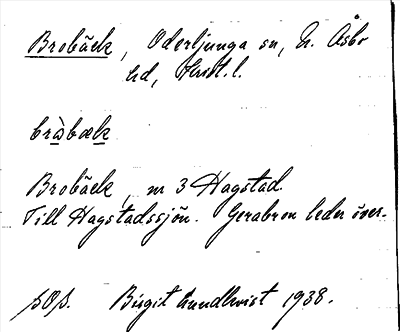 Brobäck, Oderljunga sn, N. Åsbo
hd, Krist. l.
bràbæk
Brobäck, nr 3 Hagstad.
Till Hagstadssjön. Gerabron leder över.
Birgit Lundkvist 1938.